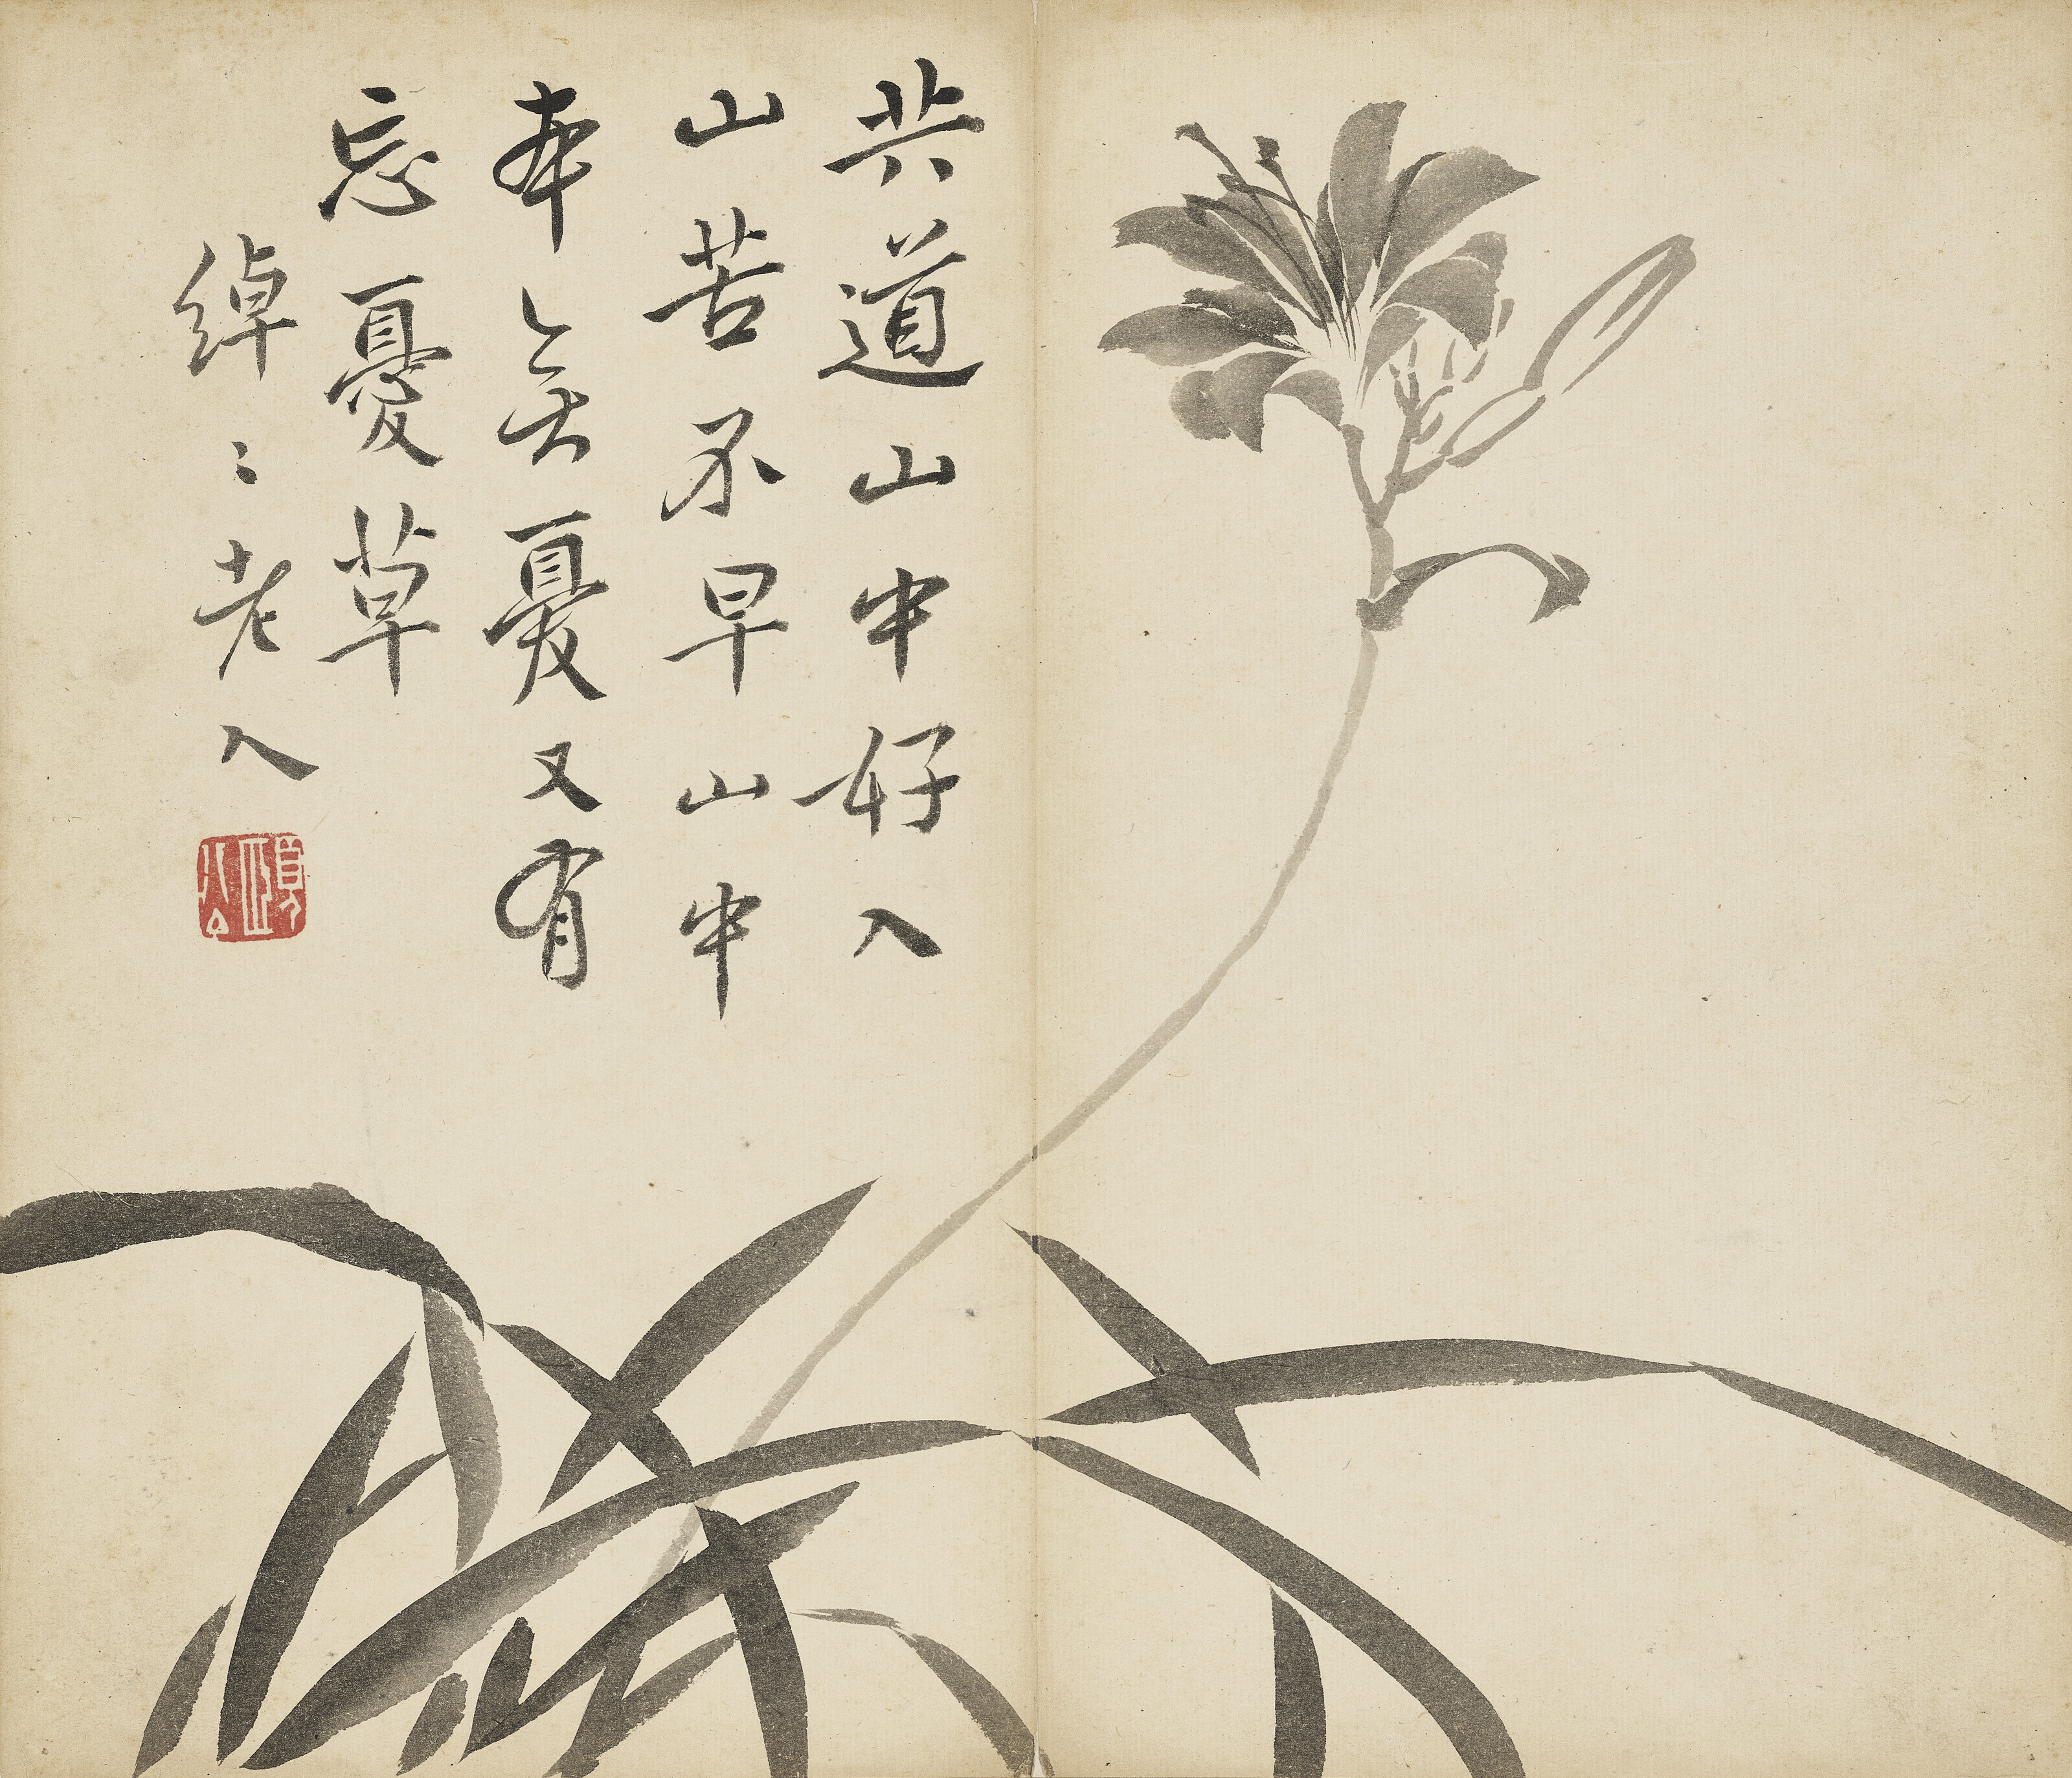 共道山中好入
山苦不早山中
本無憂又有
忘憂草
綽〻老人